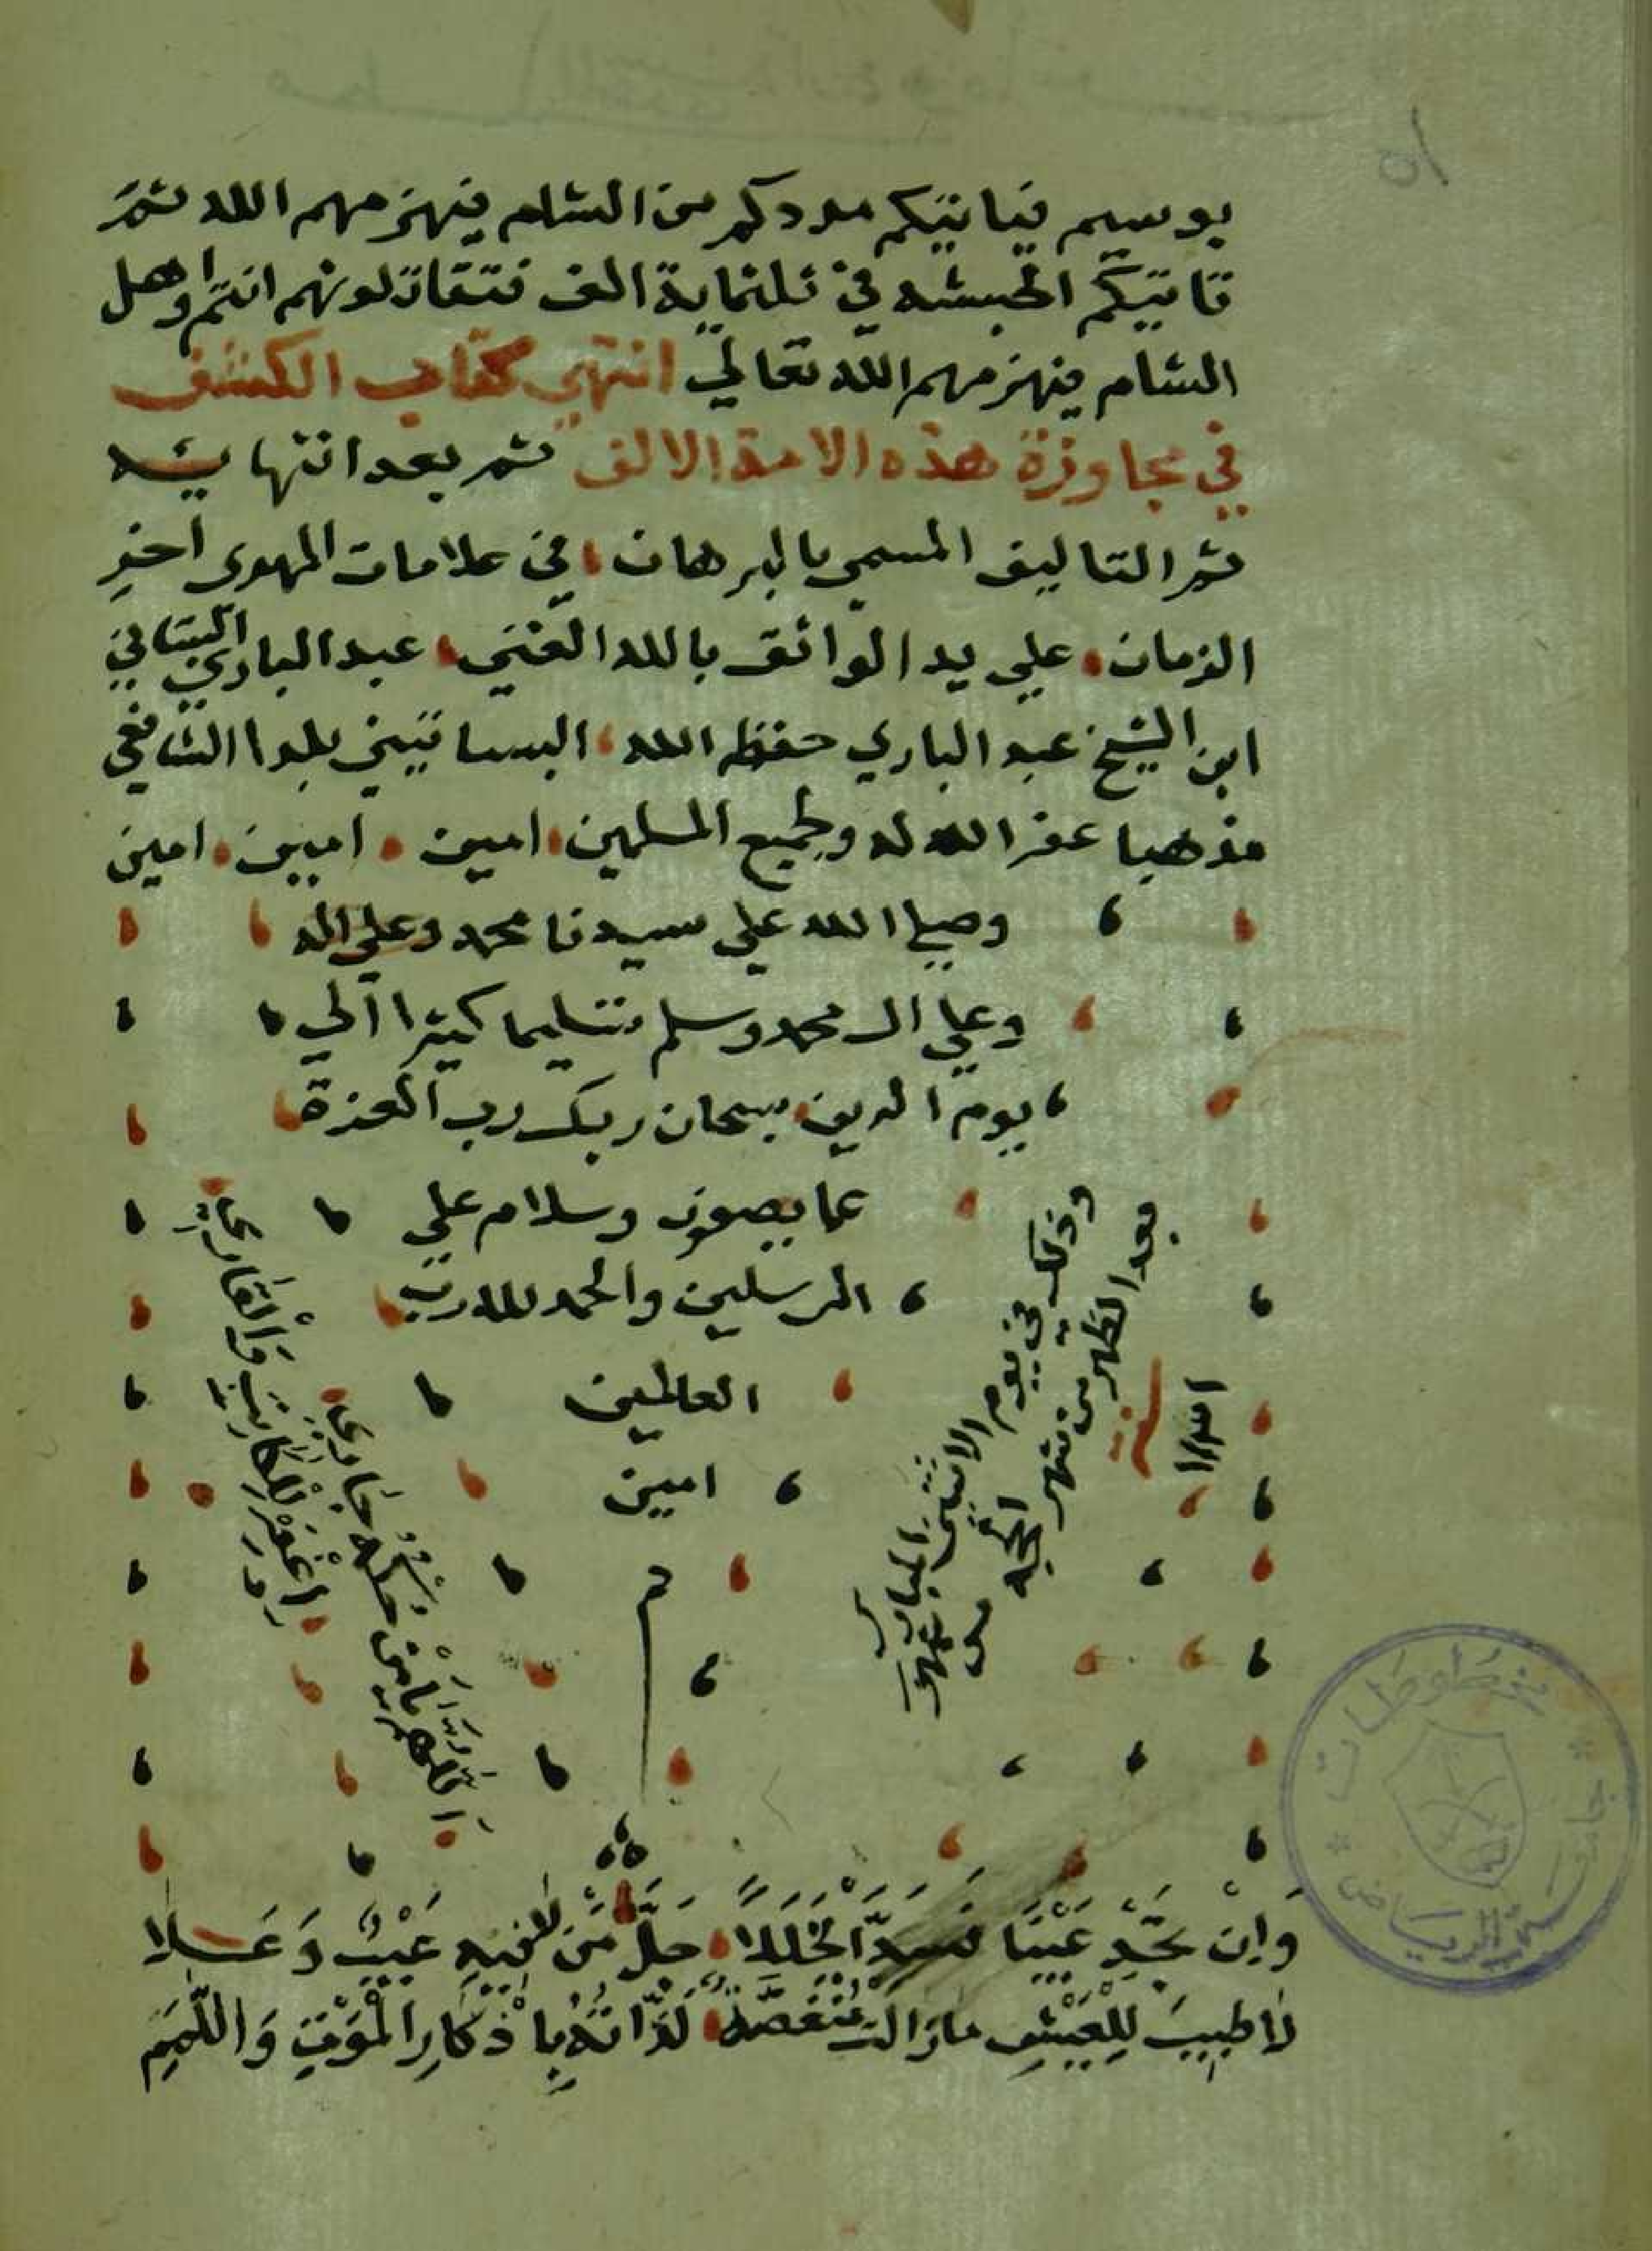 بوسيم فياتيكم مددكم من الشام فيهزمهم الله ثم
تاتيكم الحبشه في ثلثماية الف فتقاتلونهم انتم واهل
الشام فيهزمهم الله تعالي انتهي كتاب الكشف
في مجاوزة هذه الامة الالف ثم بعد انتهايه
ثم التاليف المسمي بالبرهان في علامات المهدى اخر
الزمان علي يد الواثق بالله الغني عبد الباري
ابن الشيخ عبد الباري حفظه الله البساتيني بلدا الشافعي
مذهبا غفر الله له ولجميع المسلمين امين امين امين
وصلي الله علي سيدنا محمد وعلي اله
وعلي ال محمد وسلم تسليما كثيرا الي
يوم الدين سبحان ربك رب العزة
عما يصفون وسلام علي
المرسلين والحمد لله رب
العالمين
امين
وذلك في يوم الاثنين المبارك
بعد الظهر من شهر الحجه
اللهم يا من
اغفر للكاتب والقاري
وان تجد عيبا فسد الخللا جل من لا فيه عيب وعلا
لا طيب للعيش مادامت منغصة لذاته باذكار الموت والهرم
مخطوطات
جامعة الرياض